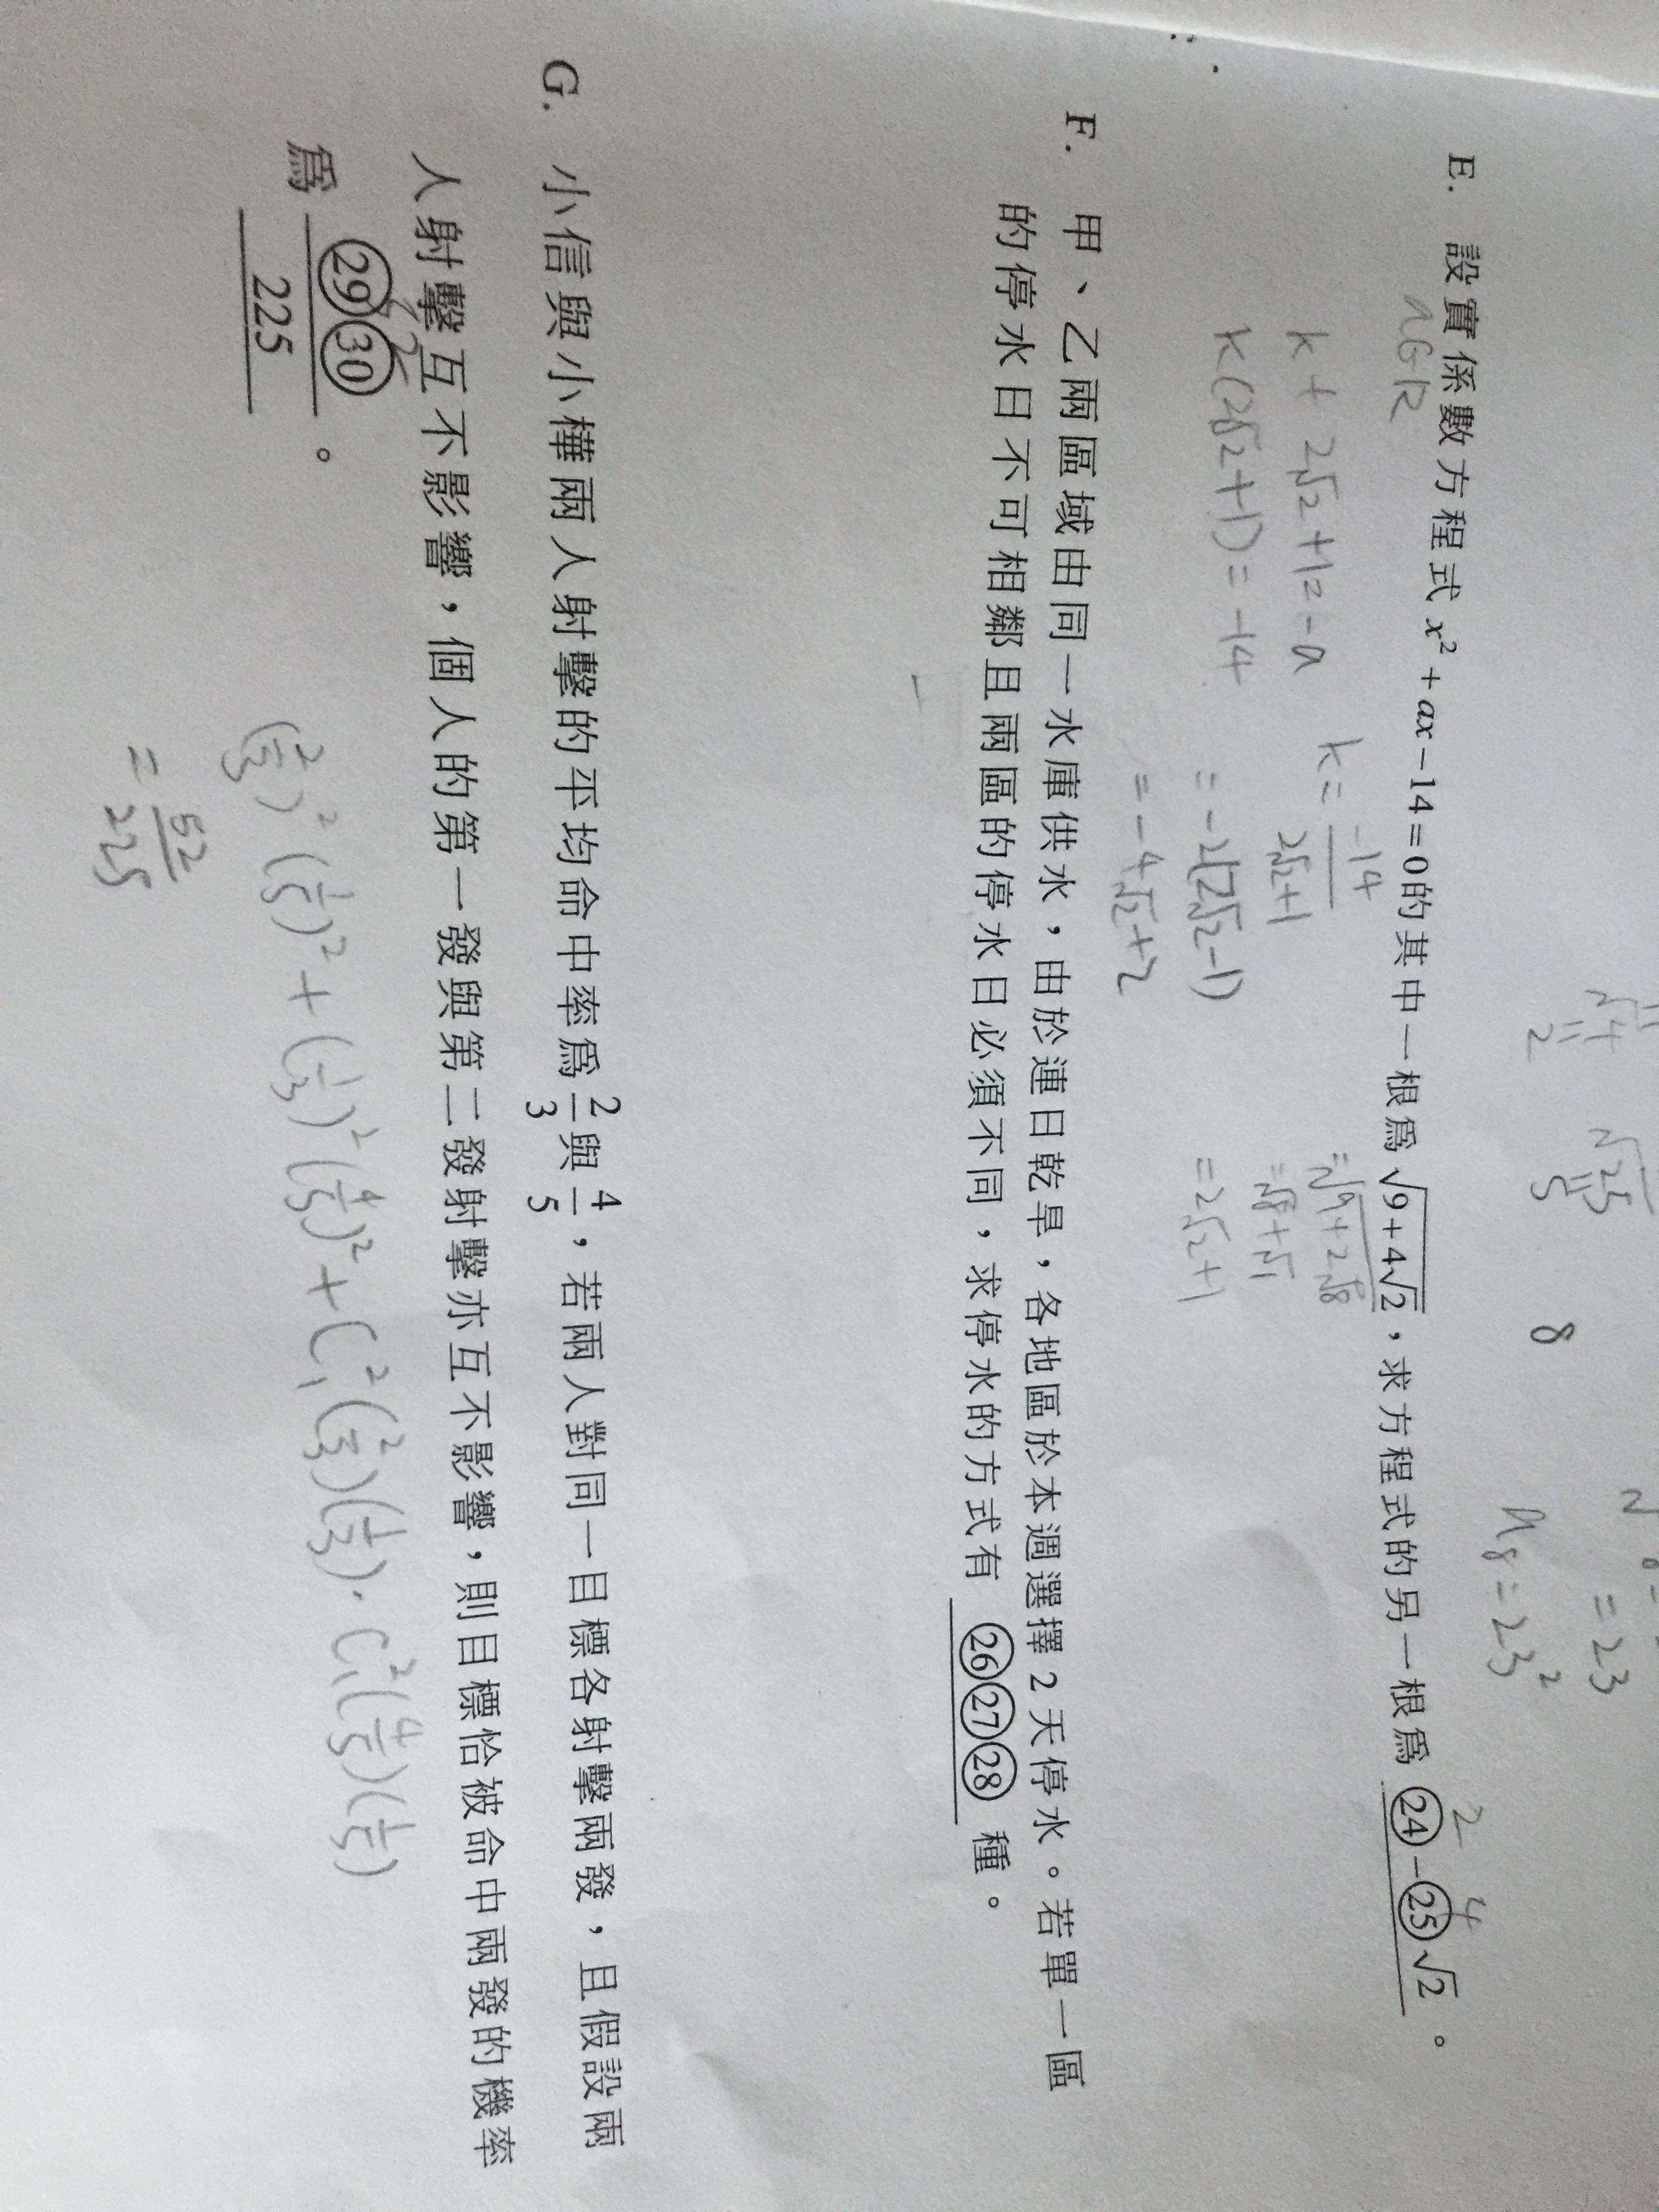 = 23
a₈ = 23²
√4
2
√25
5
8
E. 設實係數方程式 x² + ax − 14 = 0 的其中一根為 √(9+4√2)，求方程式的另一根為 ㉔ − ㉕√2 。
2 4
a∈R
= √(9+2√8)
= √8+√1
= 2√2+1
k + 2√2 + 1 = −a
k(2√2+1) = −14
k = −14/(2√2+1)
= −2(2√2−1)
= −4√2+2
F. 甲、乙兩區域由同一水庫供水，由於連日乾旱，各地區於本週選擇 2 天停水。若單一區
的停水日不可相鄰且兩區的停水日必須不同，求停水的方式有 ㉖㉗㉘ 種。
G. 小信與小樺兩人射擊的平均命中率為 2/3 與 4/5，若兩人對同一目標各射擊兩發，且假設兩
人射擊互不影響，個人的第一發與第二發射擊亦互不影響，則目標恰被命中兩發的機率
為 ㉙㉚/225 。
5 2
(2/3)²(1/5)² + (1/3)²(4/5)² + C²₁(2/3)(1/3)·C²₁(4/5)(1/5)
= 52/225